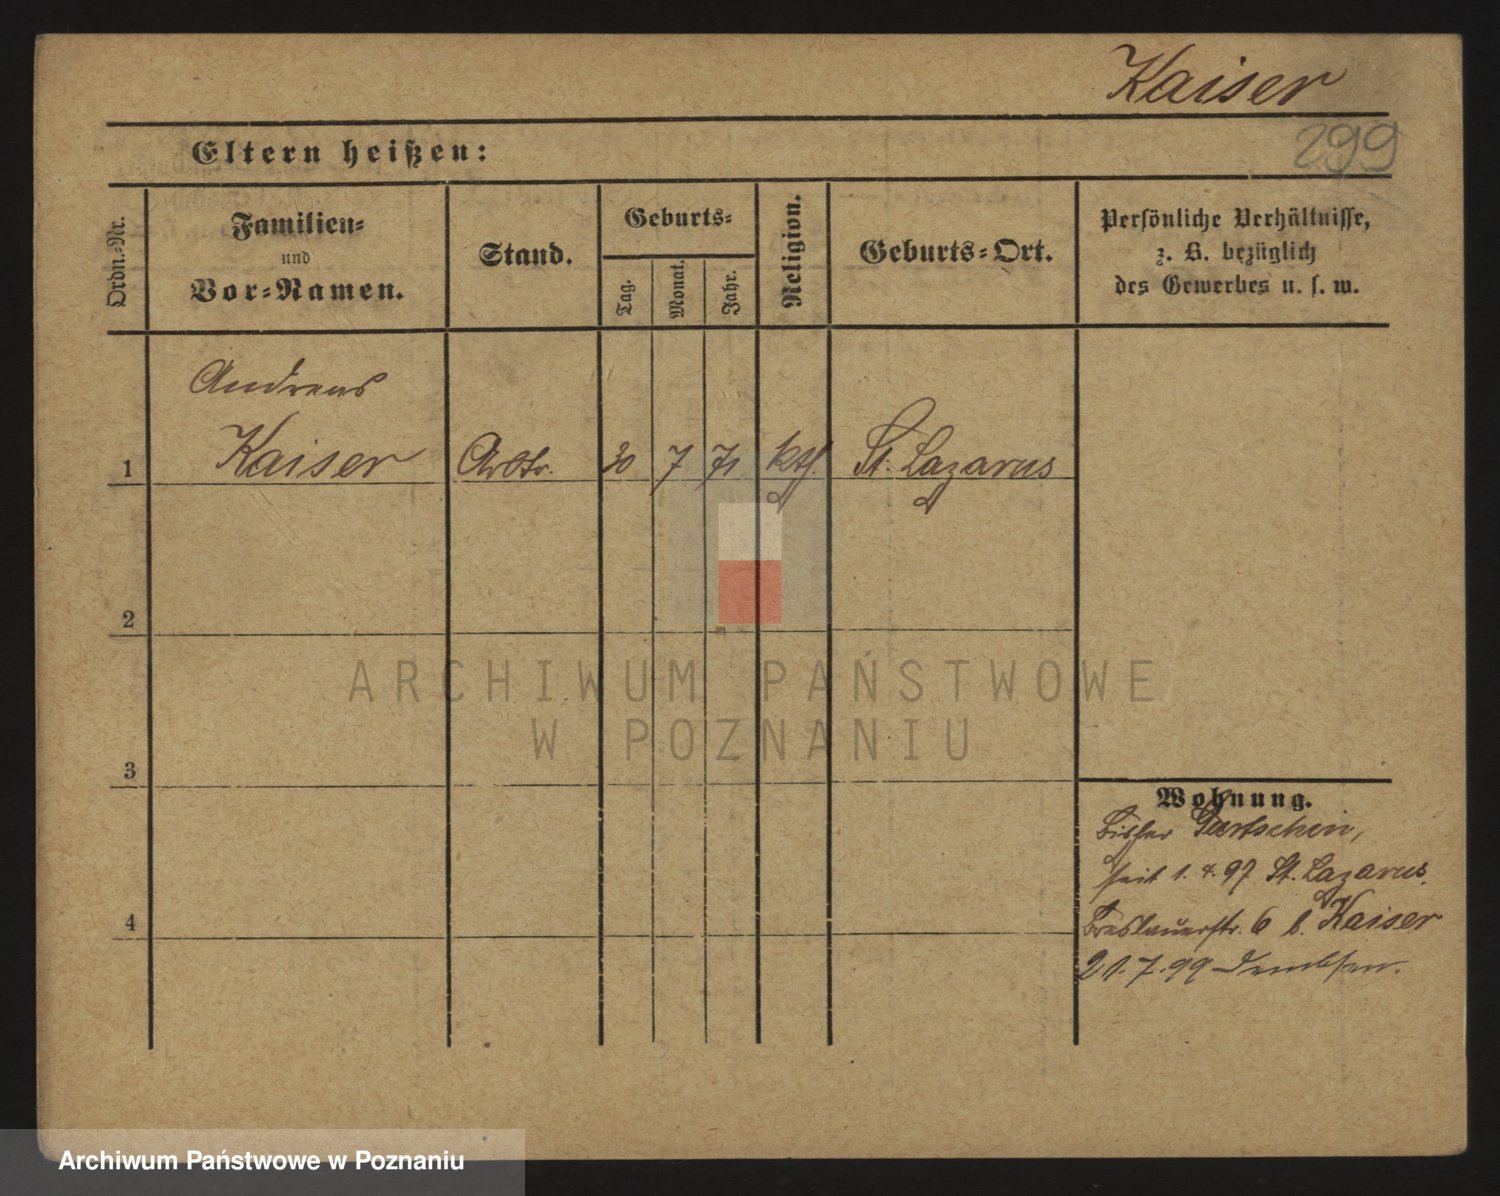 Kaiser
299
Eltern heißen:
Ordn.-Nr.
Familien-
und
Vor-Namen.
Stand.
Geburts-
Tag.
Monat.
Jahr.
Religion.
Geburts-Ort.
Persönliche Verhältnisse,
z. B. bezüglich
des Gewerbes u. s. w.
Andreas
1 Kaiser Arbtr. 7 71 kth. St. Lazarus
2
3
4
Wohnung.
Bisher
seit 1. 97 St. Lazarus.
Breslauerstr. 6 b. Kaiser
21.7.99 Dembsen.
ARCHIWUM PAŃSTWOWE
W POZNANIU
Archiwum Państwowe w Poznaniu